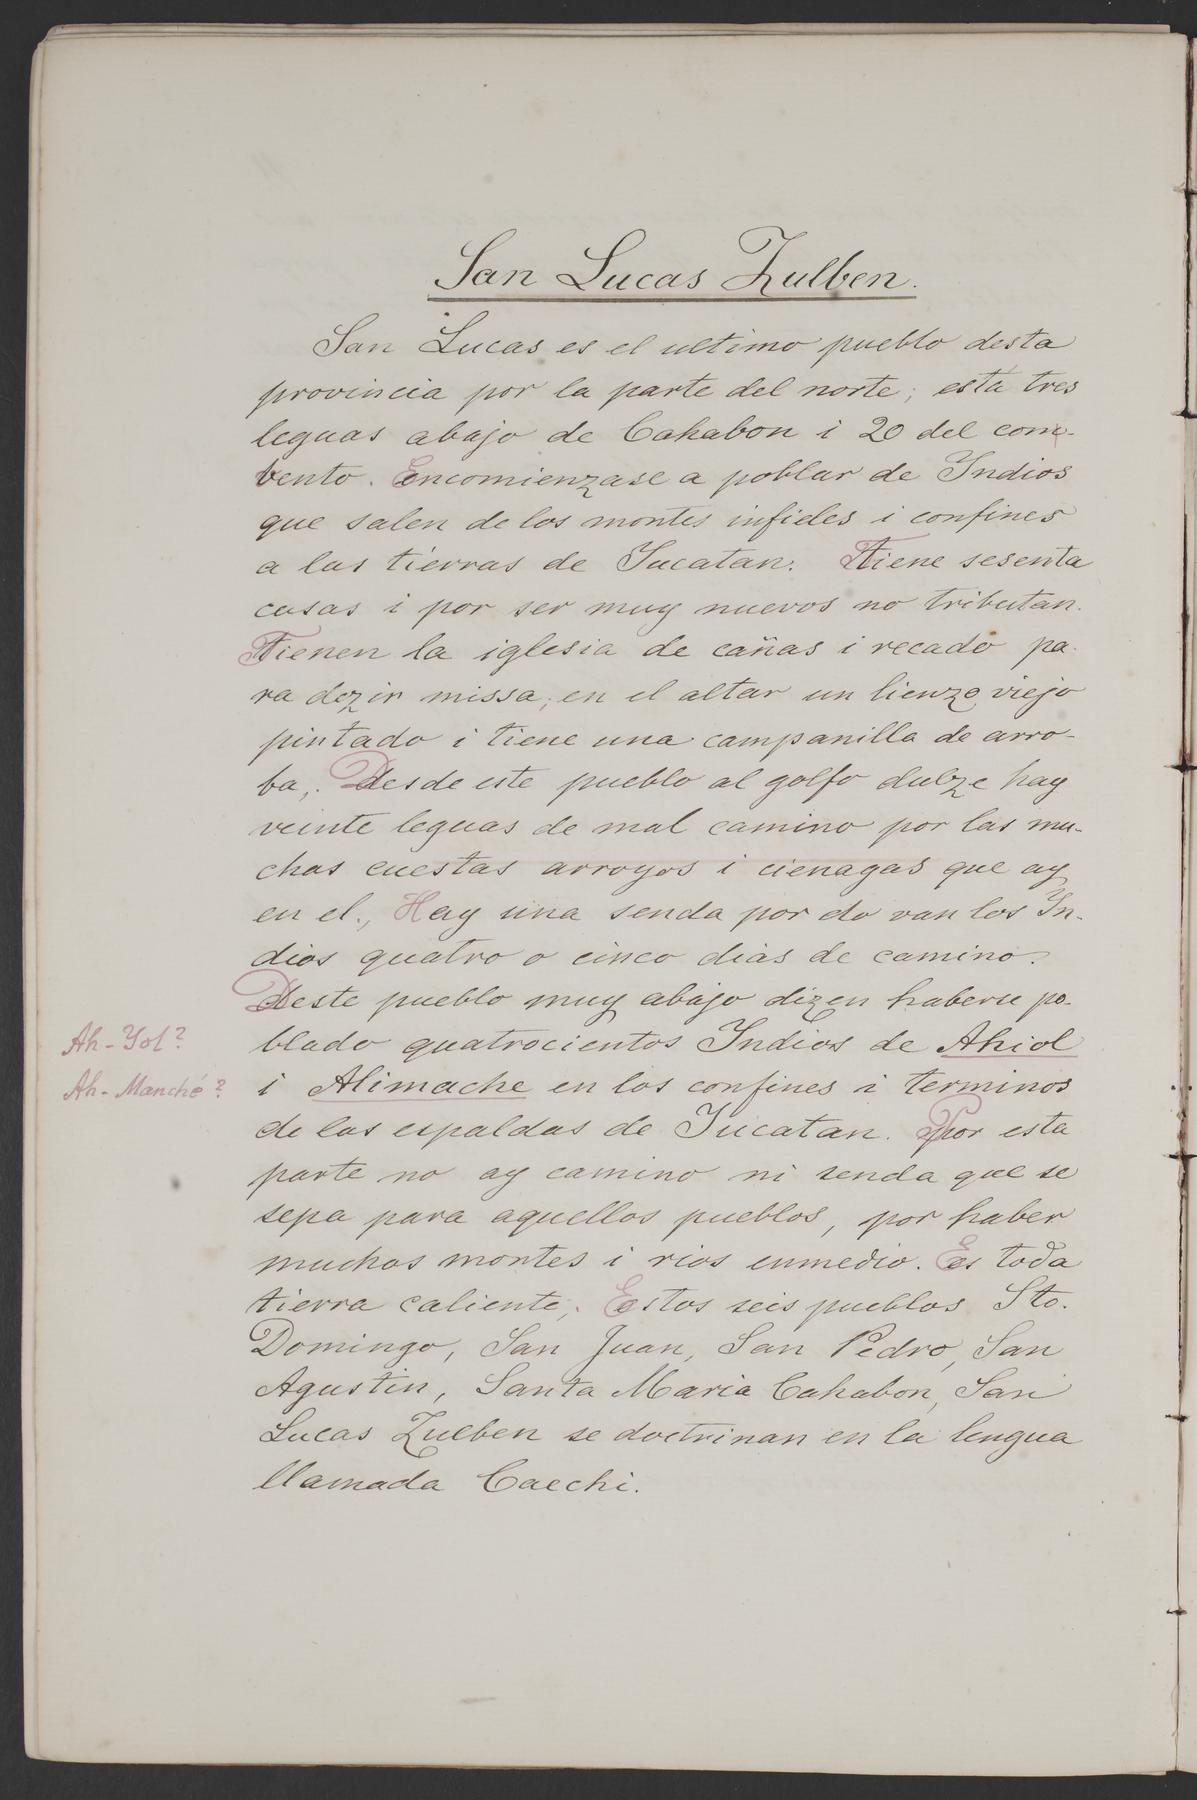 San Lucas Zulben.
San Lucas es el ultimo pueblo desta
provincia por la parte del norte; esta tres
leguas abajo de Cahabon i 20 del com-
bento. Encomienzase a poblar de Indios
que salen de los montes infieles i confines
a las tierras de Yucatan. Tiene sesenta
casas i por ser muy nuevos no tributan.
Tienen la iglesia de cañas i recado pa-
ra dezir missa; en el altar un lienzo viejo
pintado i tiene una campanilla de arro-
ba. Desde este pueblo al golfo dulze hay
veinte leguas de mal camino por las mu-
chas cuestas arroyos i cienagas que ay
en el. Hay una senda por do van los In-
dios quatro o cinco dias de camino.
Deste pueblo muy abajo dizen haberse po-
Ah-Yol?
blado quatrocientos Indios de Ahiol
Ah-Manché?
i Alimache en los confines i terminos
de las espaldas de Yucatan. Por esta
parte no ay camino ni senda que se
sepa para aquellos pueblos, por haber
muchos montes i rios enmedio. Es toda
tierra caliente. Estos seis pueblos Sto.
Domingo, San Juan, San Pedro, San
Agustin, Santa Maria Cahabon, San
Lucas Zulben se doctrinan en la lengua
llamada Caechi.